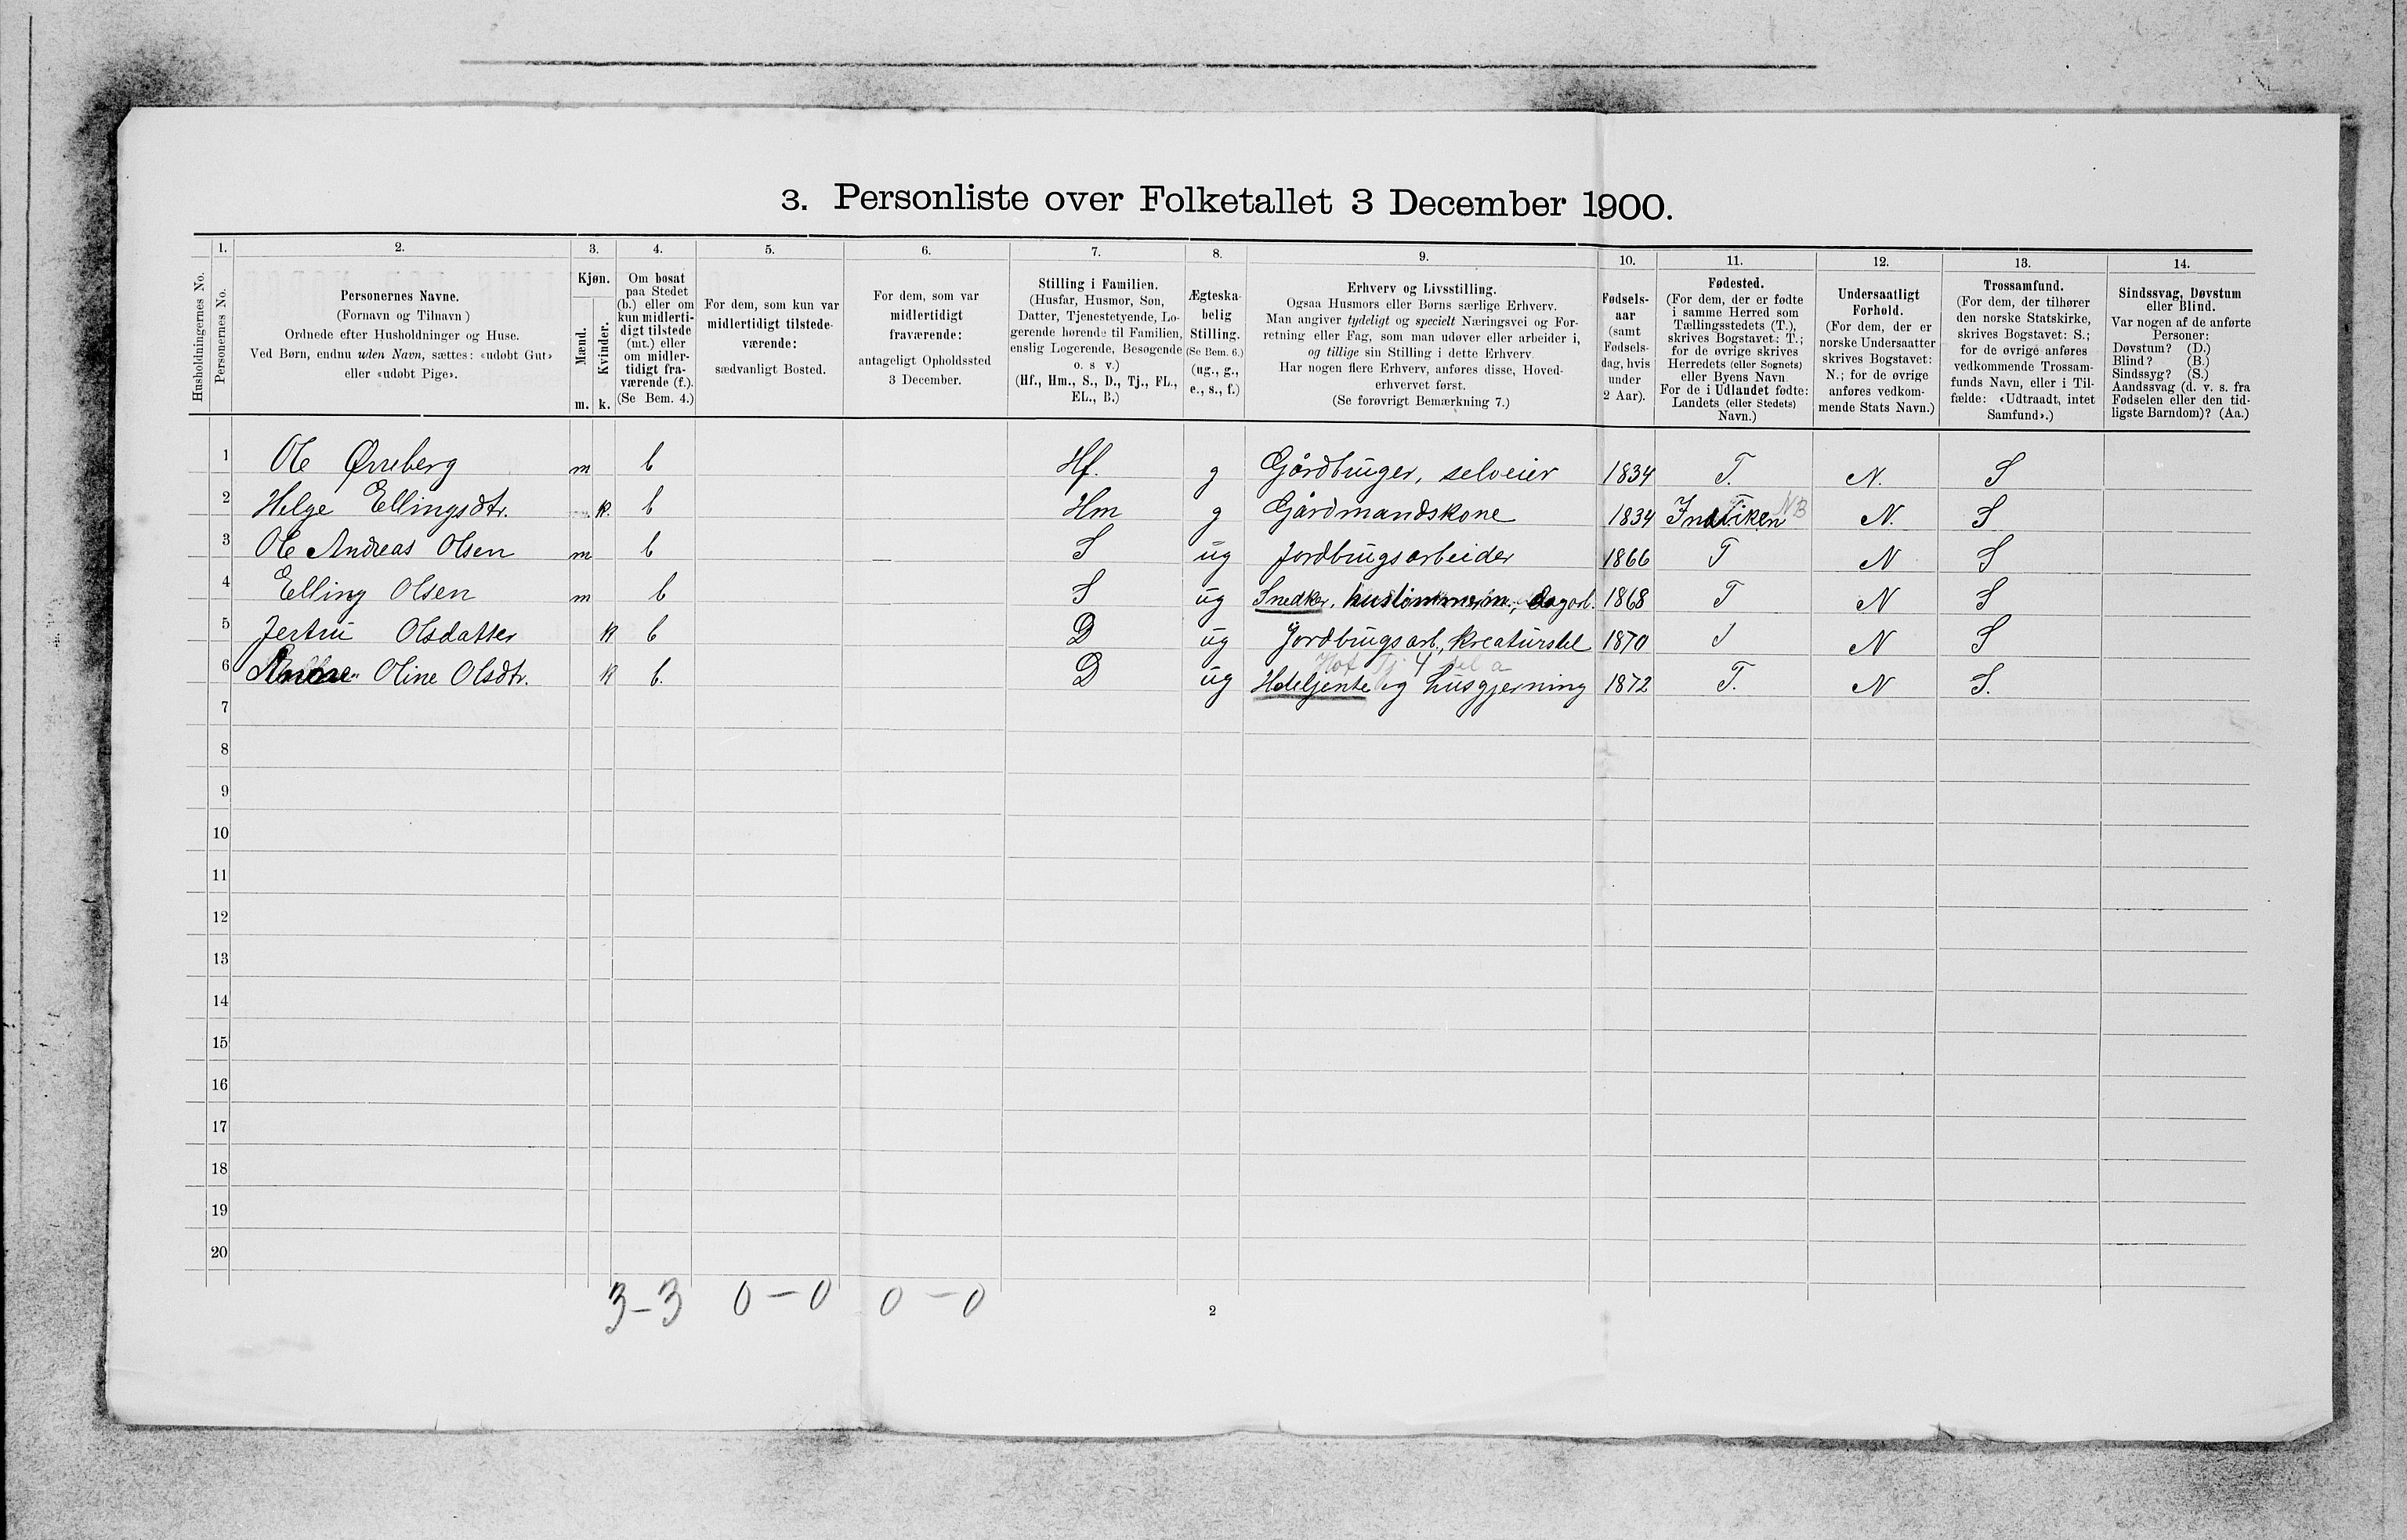 3. Personliste over Folketallet 3 December 1900.
1. 2. 3. 4. 5. 6. 7. 8. 9. 10. 11. 12. 13. 14.
Husholdningernes No.
Personernes No.
Personernes Navne.
(Fornavn og Tilnavn)
Ordnede efter Husholdninger og Huse.
Ved Børn, endnu uden Navn, sættes: «udøbt Gut»
eller «udøbt Pige».
Kjøn.
Mænd.
Kvinder.
m. k.
Om bosat
paa Stedet
(b.) eller om
kun midlerti-
digt tilstede
(mt.) eller
om midler-
tidigt fra-
værende (f.).
(Se Bem. 4.)
For dem, som kun var
midlertidigt tilstede-
værende:
sædvanligt Bosted.
For dem, som var
midlertidigt
fraværende:
antageligt Opholdssted
3 December.
Stilling i Familien.
(Husfar, Husmor, Søn,
Datter, Tjenestetyende, Lo-
gerende hørende til Familien,
enslig Logerende, Besøgende
o. s v.)
(Hf., Hm., S., D., Tj., FL.,
EL., B.)
Ægteska-
belig
Stilling.
(Se Bem. 6.)
(ug., g.,
e., s., f.)
Erhverv og Livsstilling.
Ogsaa Husmors eller Børns særlige Erhverv.
Man angiver tydeligt og specielt Næringsvei og For-
retning eller Fag, som man udøver eller arbeider i,
og tillige sin Stilling i dette Erhverv.
Har nogen flere Erhverv, anføres disse, Hoved-
erhvervet først.
(Se forøvrigt Bemærkning 7.)
Fødsels-
aar
(samt
Fødsels-
dag, hvis
under
2 Aar).
Fødested.
(For dem, der er fødte
i samme Herred som
Tællingsstedets (T.),
skrives Bogstavet: T.;
for de øvrige skrives
Herredets (eller Sognets)
eller Byens Navn.
For de i Udlandet fødte:
Landets (eller Stedets)
Navn.)
Undersaatligt
Forhold.
(For dem, der er
norske Undersaatter
skrives Bogstavet:
N.; for de øvrige
anføres vedkom-
mende Stats Navn.)
Trossamfund.
(For dem, der tilhører
den norske Statskirke,
skrives Bogstavet: S.;
for de øvrige anføres
vedkommende Trossam-
funds Navn, eller i Til-
fælde: «Udtraadt, intet
Samfund».)
Sindssvag, Døvstum
eller Blind.
Var nogen af de anførte
Personer:
Døvstum? (D.)
Blind? (B.)
Sindssyg? (S.)
Aandssvag (d. v. s. fra
Fødselen eller den tid-
ligste Barndom)? (Aa.)
1 Ole Ørreberg m b Hf. g Gårdbruger, selveier 1834 T. N. S
2 Helge Ellingsdtr. k. b Hm g Gårdmandskone 1834 NB N. S
3 Ole Andreas Olsen m b S ug Jordbrugsarbeider 1866 T N S
4 Elling Olsen m b S ug Snedker, dagarb. 1868 T N S
5 Jertru Olsdatter k b D ug Jordbrugsarb., kreaturstel 1870 T N S
6 Oline Olsdtr. k b. D ug og husgjerning 1872 T. N S.
7
8
9
10
11
12
13
14
15
16
17
18
19
20
3-3 0-0 0-0
2